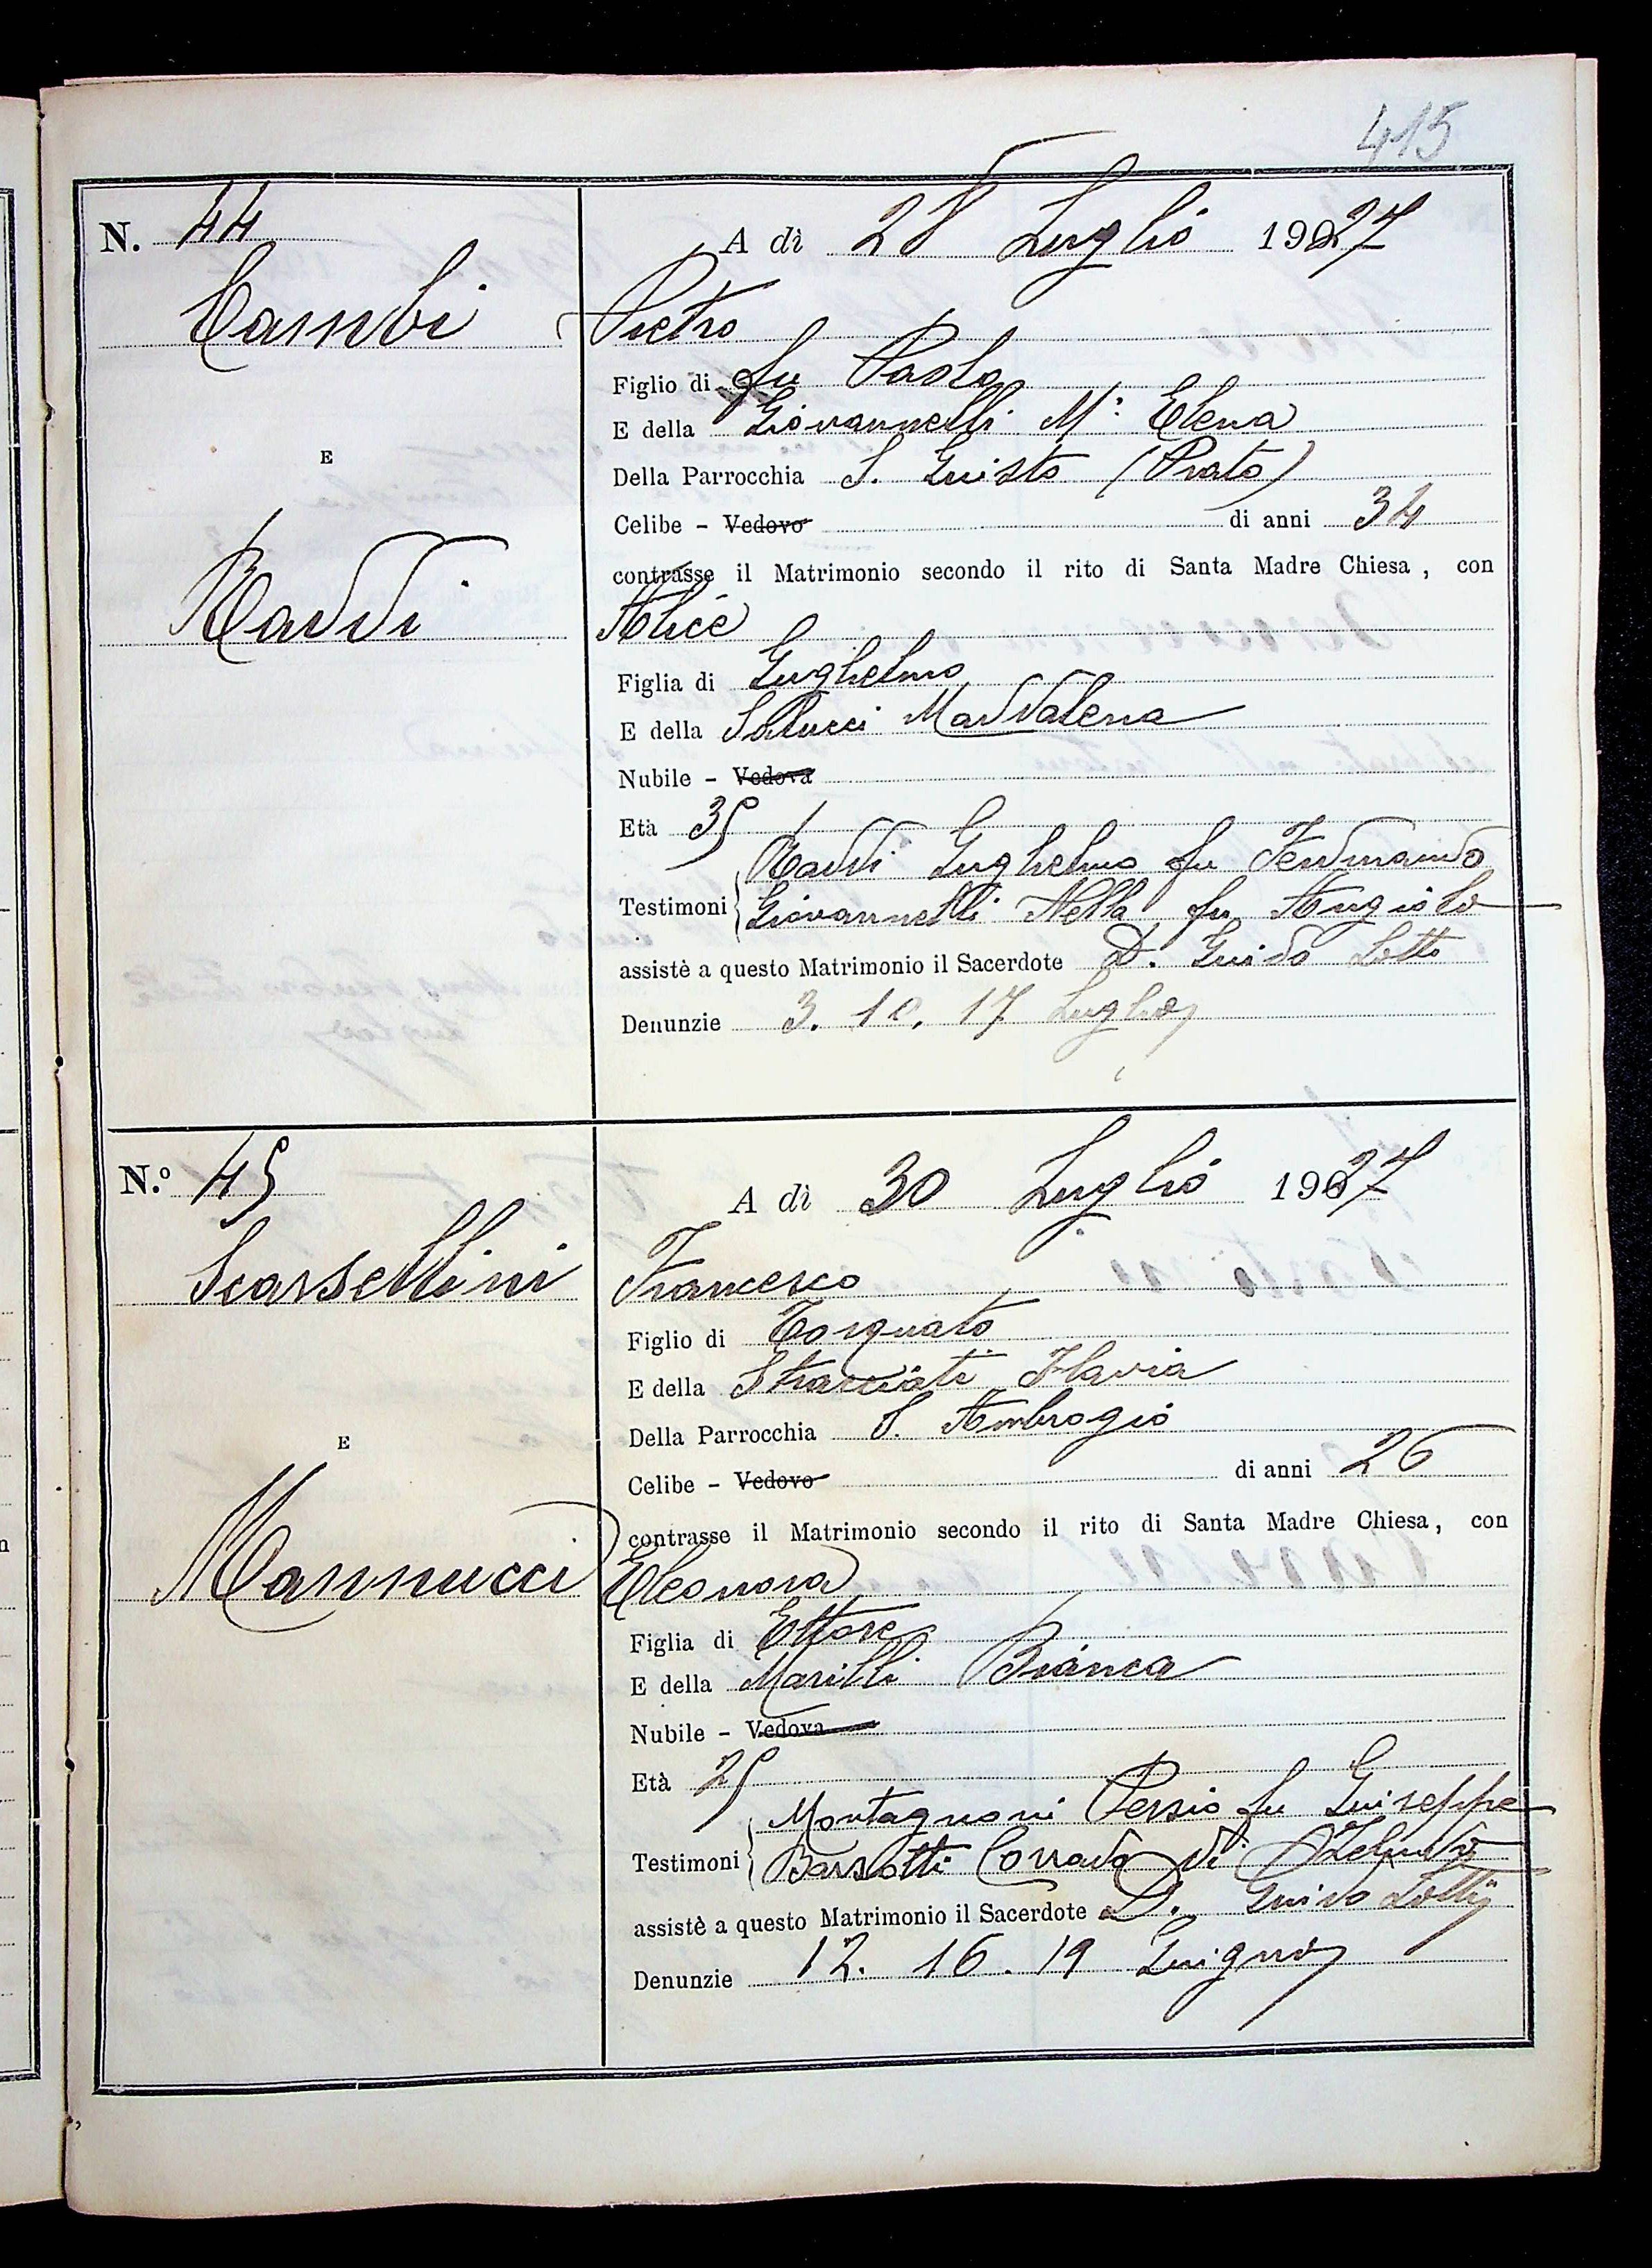 415
N. 44
A dì 28 Luglio 1927
Cambi
Pietro
Figlio di fu Paolo
E della Giovannelli Mª Elena
E
Della Parrocchia S. Giusto (Prato)
Celibe - Vedovo di anni 34
contrasse il Matrimonio secondo il rito di Santa Madre Chiesa, con
Raddi
Alice
Figlia di Guglielmo
E della Salucci Maddalena
Nubile - Vedova
Età 35
Raddi Guglielmo fu Ferdinando
Testimoni
Giovannelli Nella fu Angiolo
assistè a questo Matrimonio il Sacerdote D. Guido Lotti
Denunzie 3. 10. 17 Luglio
N.º 45
A dì 30 Luglio 1927
Scarsellini
Francesco
Figlio di Torquato
E della Stracciati Flavia
Della Parrocchia S. Ambrogio
E
Celibe - Vedovo di anni 26
contrasse il Matrimonio secondo il rito di Santa Madre Chiesa, con
Mannucci
Eleonora
Figlia di Ettore
E della Marilli Bianca
Nubile - Vedova
Età 25
Montagnoni Persio fu Giuseppe
Testimoni
Barsotti Corrado di
assistè a questo Matrimonio il Sacerdote D. Guido Lotti
Denunzie 12. 16. 19 Giugno